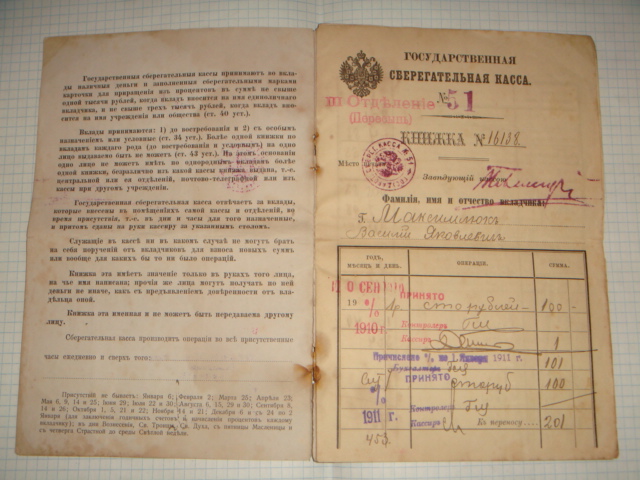 Государственныя сберегательныя кассы принимаютъ во вкла-
ды наличныя деньги и заполненныя сберегательными марками
карточки для приращенія изъ процентовъ въ суммѣ не свыше
одной тысячи рублей, когда вкладъ вносится на имя единоличнаго
вкладчика, и не свыше трехъ тысячъ рублей, когда вкладъ вно-
сится на имя учрежденія или общества (ст. 40 уст.).
Вклады принимаются: 1) до востребованія и 2) съ особымъ
назначеніемъ или условные (ст. 34 уст.). Болѣе одной книжки по
вкладамъ каждаго рода (до востребованія и условнымъ) на одно
лицо выдаваемо быть не можетъ (ст. 43 уст.). На этомъ основаніи
одно лицо не можетъ имѣть по однороднымъ вкладамъ болѣе
одной книжки, безразлично изъ какой кассы книжка выдана, т.-е.
центральной или ея отдѣленій, почтово-телеграфной или изъ
кассы при другомъ учрежденіи.
Государственная сберегательная касса отвѣчаетъ за вклады,
которые внесены въ помѣщеніяхъ самой кассы и отдѣленій, во
время присутствія, т.-е. въ дни и часы для того назначенные,
и притомъ сданы на руки кассиру за указаннымъ столомъ.
Служащіе въ кассѣ ни въ какомъ случаѣ не могутъ брать
на себя порученій отъ вкладчиковъ для взноса новыхъ суммъ
или вообще для какихъ бы то ни было операцій.
Книжка эта имѣетъ значеніе только въ рукахъ того лица,
на чье имя написана; прочія же лица могутъ получать по ней
деньги не иначе, какъ съ предъявленіемъ довѣренности отъ вла-
дѣльца оной.
Книжка эта именная и не можетъ быть передаваема другому
лицу.
Сберегательная касса производитъ операціи во всѣ присутственные
часы ежедневно и сверхъ того:
Присутствій не бываетъ: Января 6; Февраля 2; Марта 25; Апрѣля 23;
Мая 6, 9, 14 и 25; Іюня 29; Іюля 22 и 30; Августа 6, 15, 29 и 30; Сентября 8,
14 и 26; Октября 1, 5, 21 и 22; Ноября 14 и 21; Декабря 6 и съ 24 по 2
Января (для заключенія годичныхъ счетовъ и начисленія процентовъ каждому
вкладчику); въ дни Вознесенія, Св. Троицы, Св. Духа, съ пятницы Масляницы и
съ четверга Страстной до среды Свѣтлой недѣли.
ГОСУДАРСТВЕННАЯ
СБЕРЕГАТЕЛЬНАЯ КАССА.
III Отдѣленіе № 51
КНИЖКА № 16138
Мѣсто
Завѣдующій
Фамилія, имя и отчество вкладчика:
Г. Максимлюкъ
Василій Яковлевичъ
ГОДЪ, МѢСЯЦЪ И ДЕНЬ. ОПЕРАЦІИ. СУММА.
0 СЕН 1910
ПРИНЯТО
сто рублей 100
1910 г. Контролеръ
Кассиръ 1
Причислено % по 1 Января 1911 г. 101
Бухгалтеръ
ПРИНЯТО
сто руб 100
1911 г. Контролеръ
453. Кассиръ Къ переносу 201